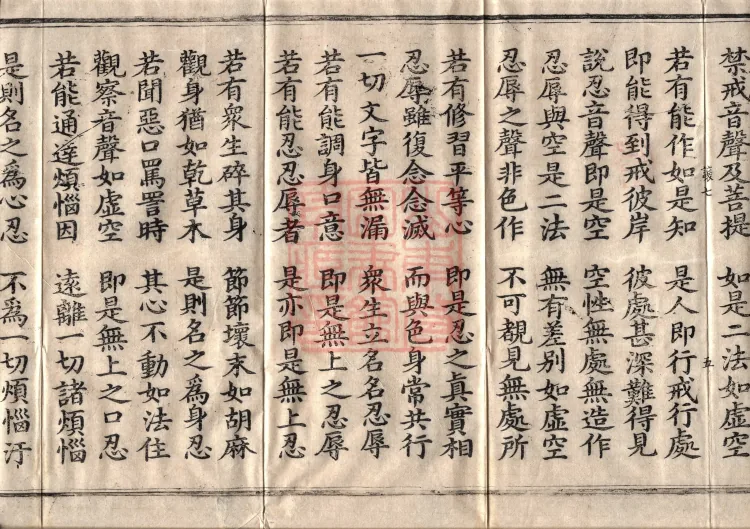 禁戒音聲及菩提 如是二法如虛空
若有能作如是知 是人即行戒行處
即能得到戒彼岸 彼處甚深難得見
說忍音聲即是空 空性無處無造作
忍辱與空是二法 無有差別如虛空
忍辱之聲非色作 不可覩見無處所
若有修習平等心 即是忍之真實相
忍辱雖復念念滅 而與色身常共行
一切文字皆無漏 衆生立名名忍辱
若有能調身口意 即是無上之忍辱
若有能忍忍辱者 是亦即是無上忍
若有衆生碎其身 節節壞末如胡麻
觀身猶如乾草木 是則名之爲身忍
若聞惡口罵詈時 其心不動如法住
觀察音聲如虛空 即是無上之口忍
若能通達煩惱因 遠離一切諸煩惱
是則名之爲心忍 不爲一切煩惱汙